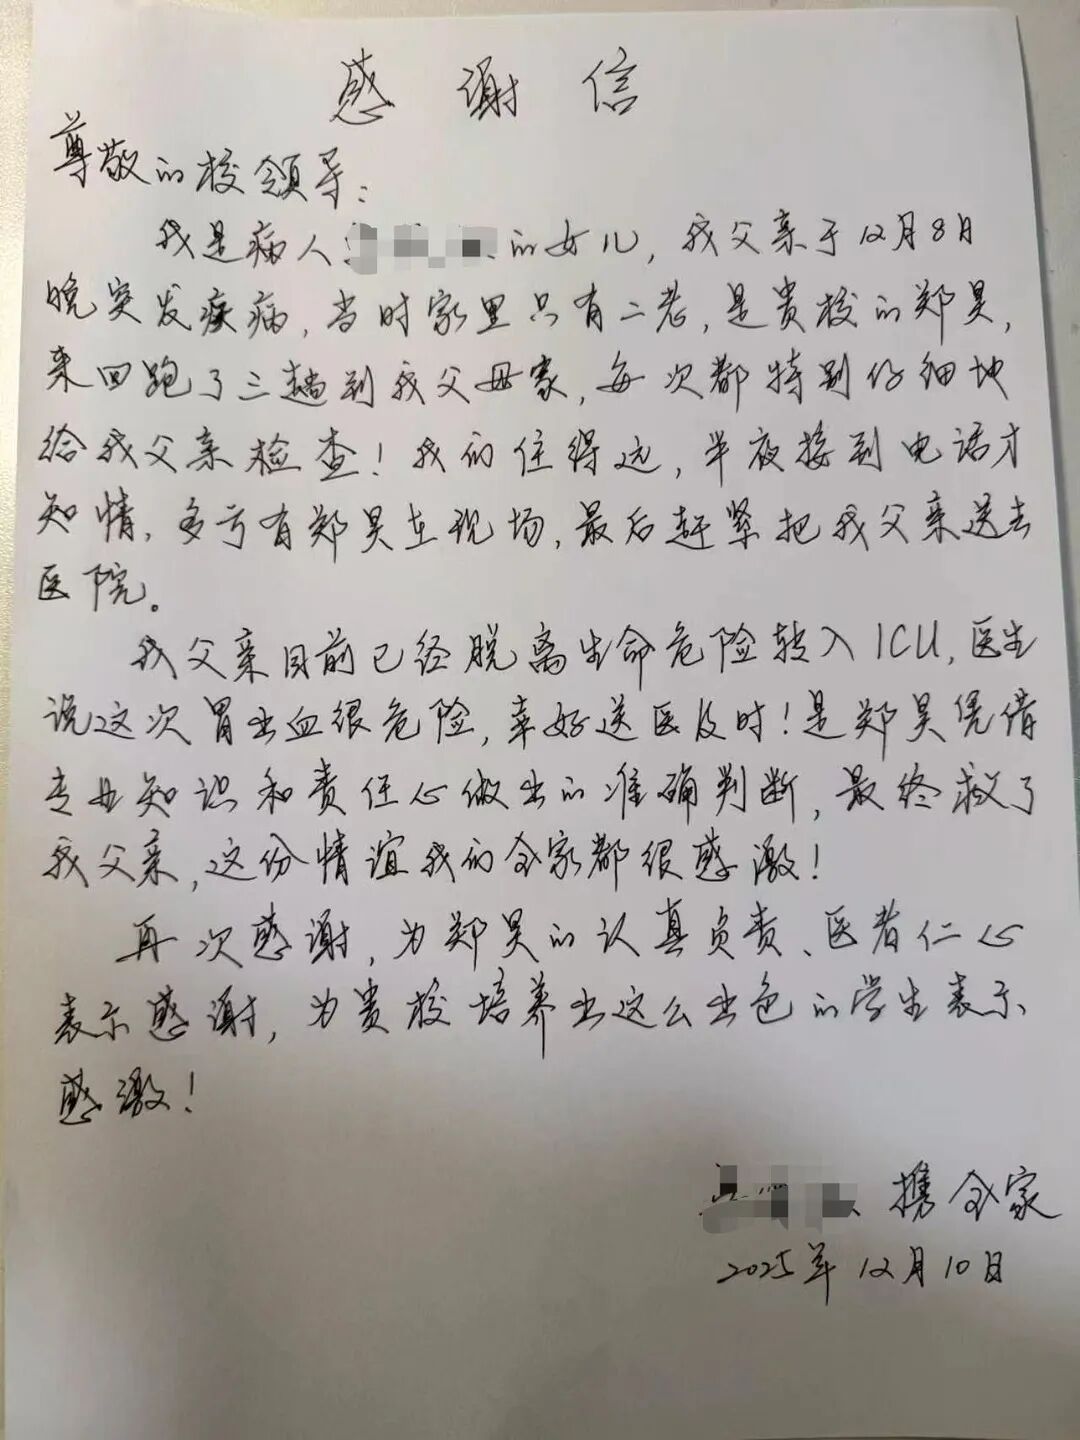 感谢信
尊敬的校领导：
我是病人的女儿，我父亲于12月8日
晚突发疾病，当时家里只有二老，是贵校的郑昊，
来回跑了三趟到我父母家，每次都特别仔细地
给我父亲检查！我们住得远，半夜接到电话才
知情，多亏有郑昊在现场，最后赶紧把我父亲送去
医院。
我父亲目前已经脱离生命危险转入ICU，医生
说这次胃出血很危险，幸好送医及时！是郑昊凭借
专业知识和责任心做出的准确判断，最终救了
我父亲，这份情谊我们全家都很感激！
再次感谢，为郑昊的认真负责、医者仁心
表示感谢，为贵校培养出这么出色的学生表示
感激！
携全家
2025年12月10日